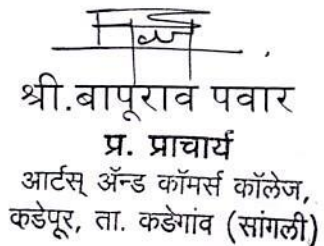 श्री.बापूराव पवार
प्र. प्राचार्य
आर्टस् ॲन्ड कॉमर्स कॉलेज,
कडेपूर, ता. कडेगांव (सांगली)